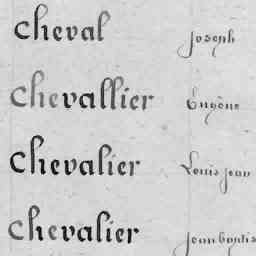 Cheval Joseph
Chevallier Eugène
Chevalier Louis Jean
Chevalier Jean baptis